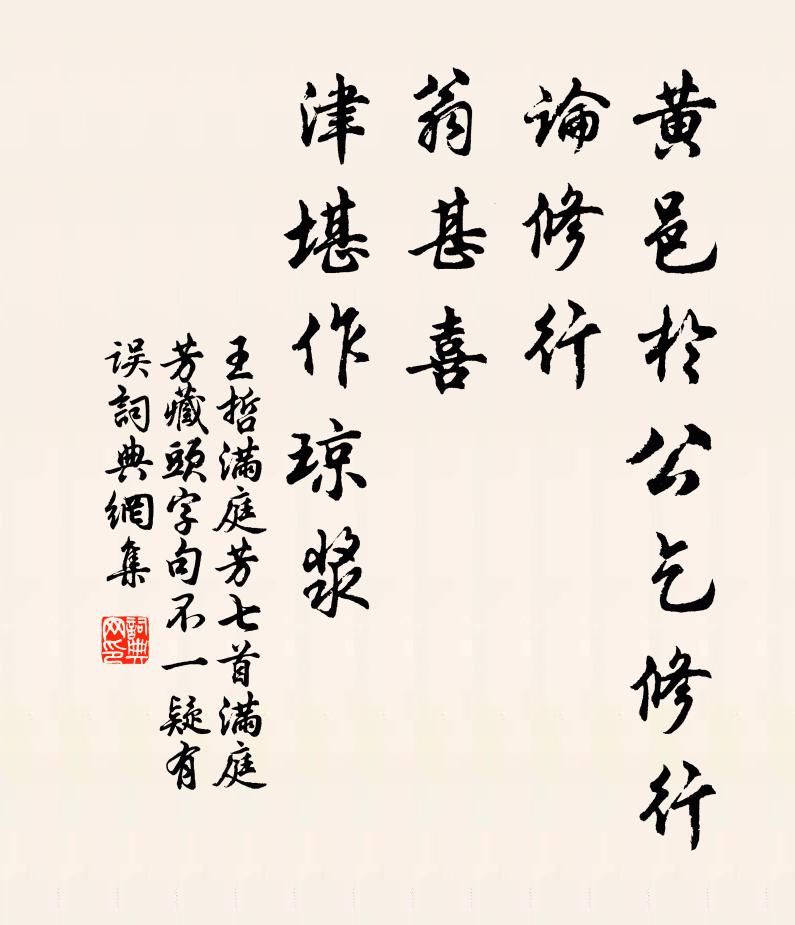 黄邑於公乞修行
論修行
翁甚喜
津堪作琼漿
王哲滿庭芳七首滿庭
芳藏頭字句不一疑有
误詞典網集
詞典
网印